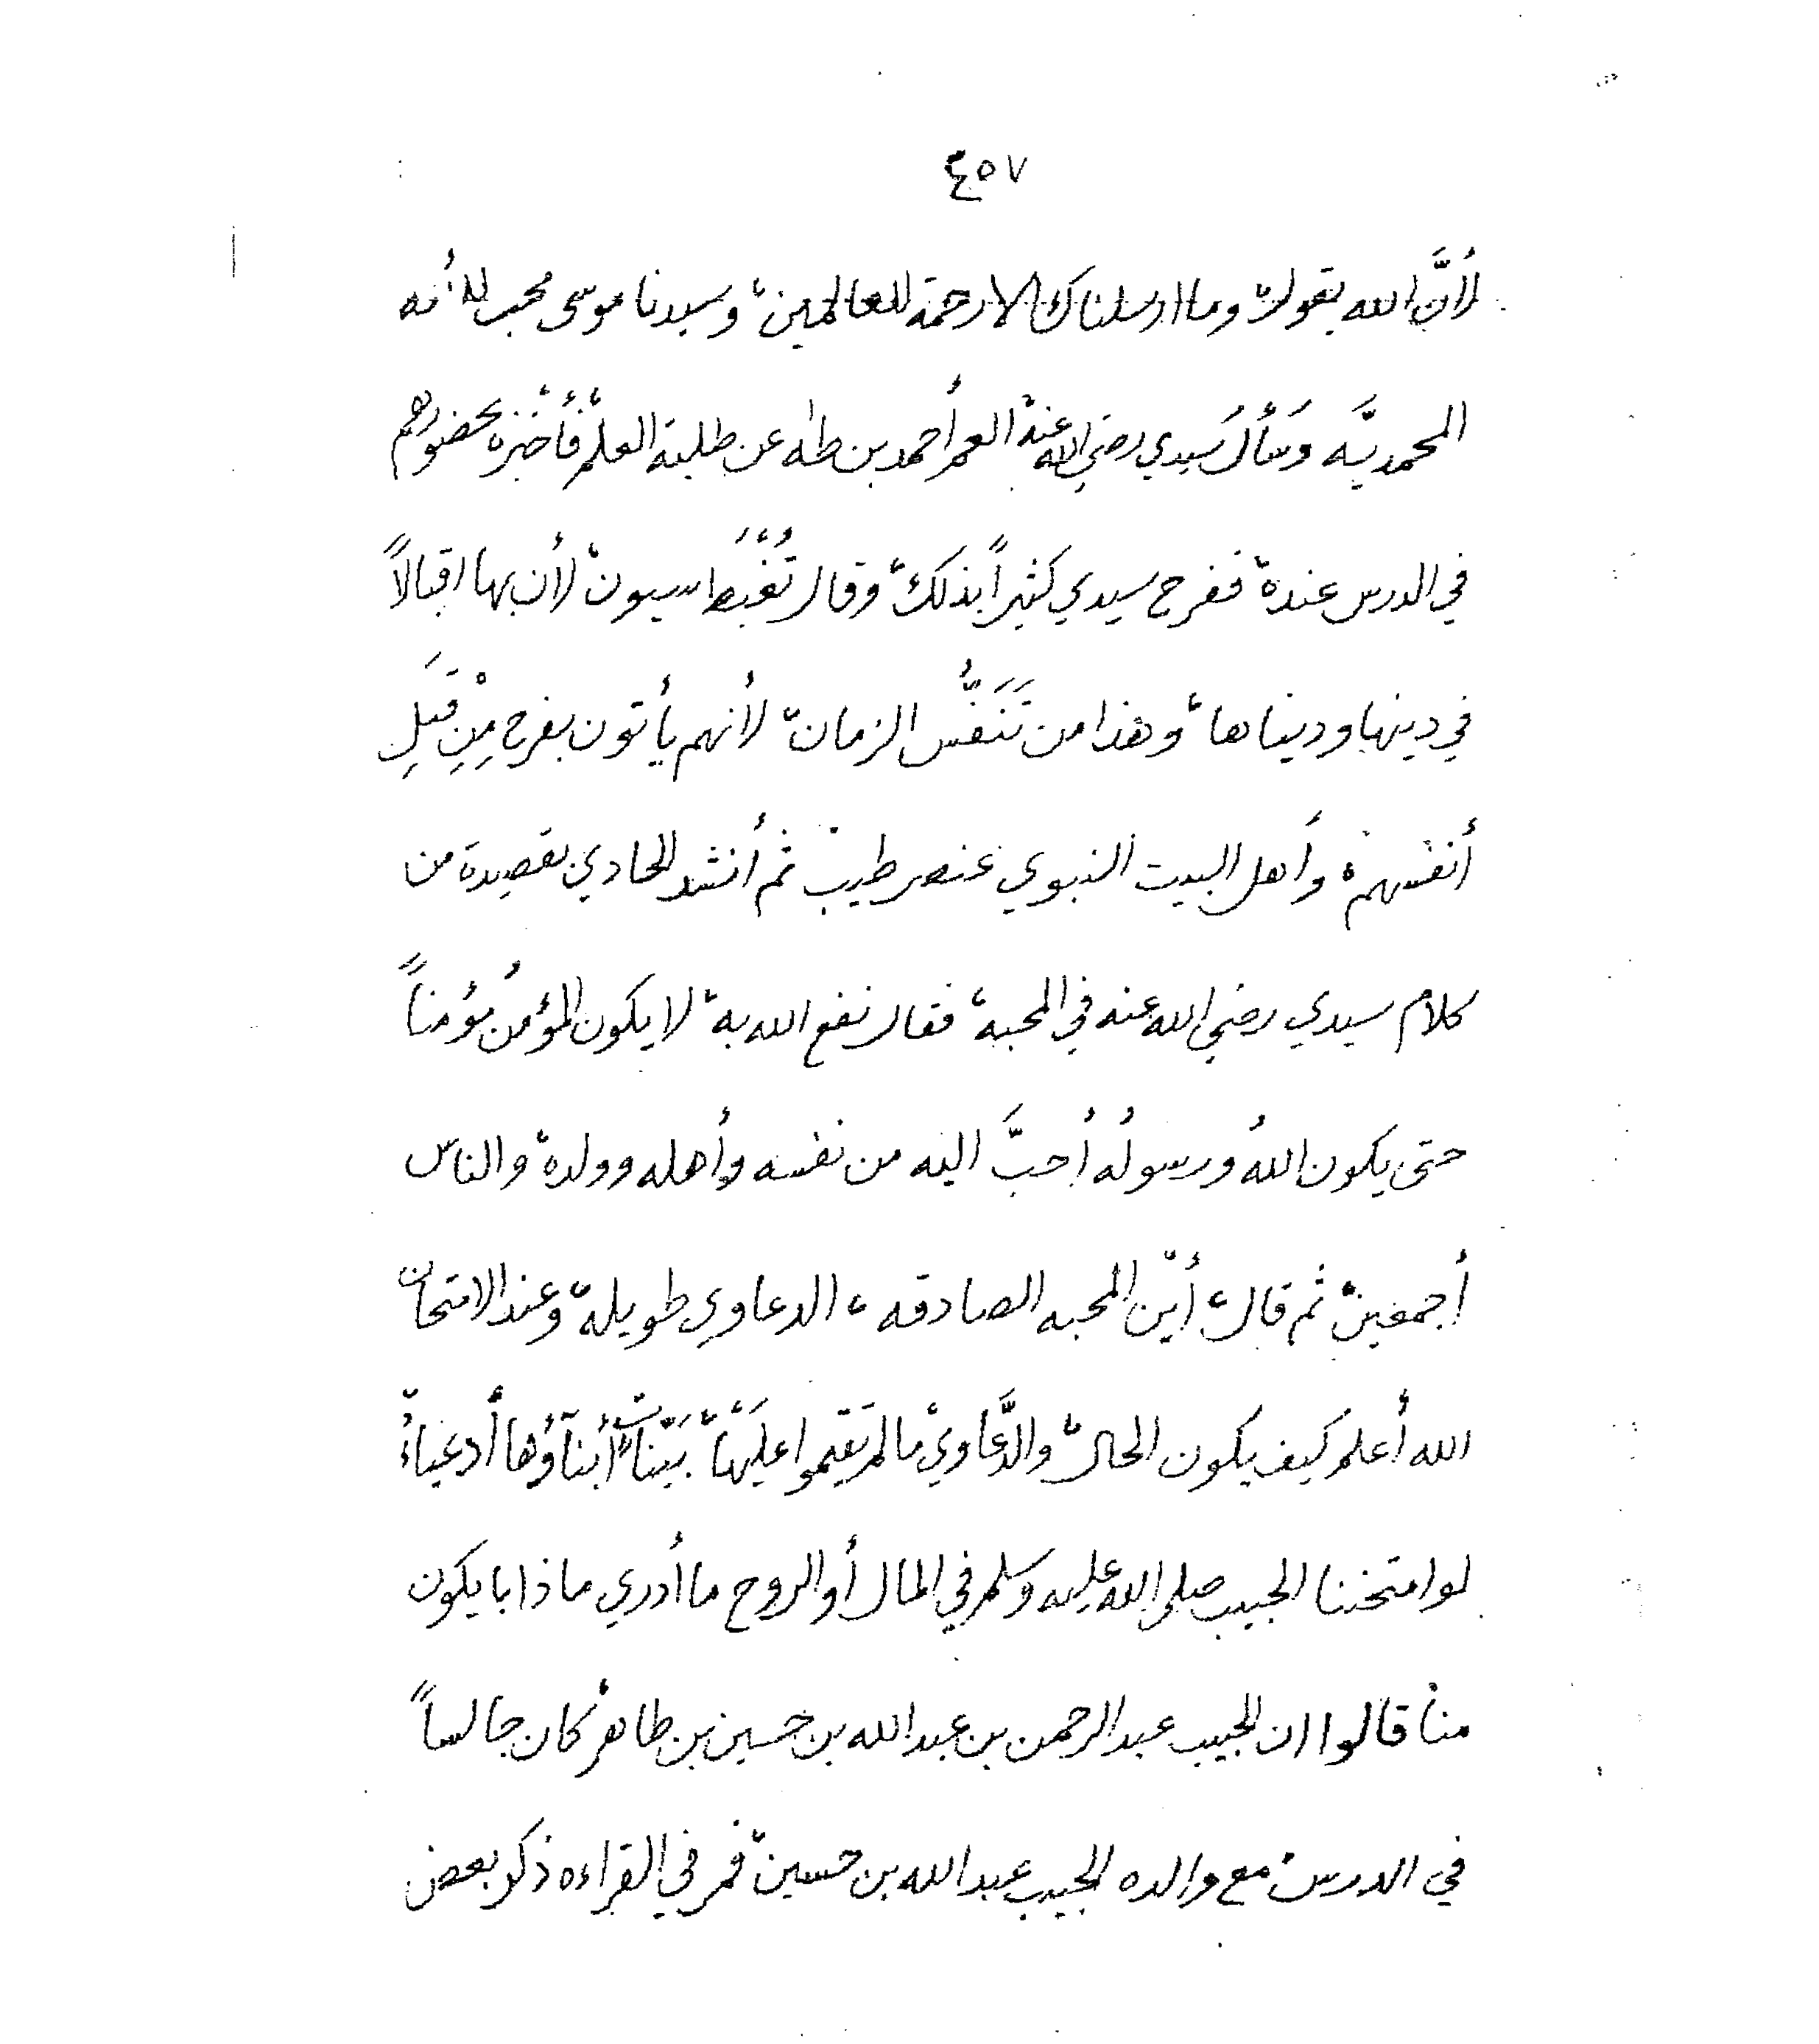 ٤٥٧
لأنَّ الله يقول، وما ارسلناك الا رحمة للعالمين، وسيدنا موسى محب للأمه
المحمديَّه وَسَأَلَ سَيدي رضي الله عنه العم أحمد بن طه عن طلبة العلم، فَأُخْبَره بحضورهم
في الدرس عنده، ففرح سيدي كثيراً بذلك، وقال تُغْبَط سيون، لأن بها اقبالاً
في دينها ودنياها، وهذا من تَنَفُّس الزمان، لأنهم يأتون بفرح مِنِ قِبَلِ
أنفسهم، وأهل البيت النبوي عنصر طيب، ثم أنشد الحادي بقصيدة من
كلام سيدي رضي الله عنه في المحبه، فقال نفع الله به، لا يكون المؤمنُ مؤمناً
حتى يكون اللهُ ورسولُه أحبَّ اليه من نفسه وأهله وولده، والناس
أجمعين، ثم قال، أين المحبه الصادقه، الدعاوي طويله، وعند الامتحان
الله أعلم كيف يكون الحال، والدَّعَاوي مَا لم تَقيموا عليْهَا، بيّناتٍ أبناؤُها أدعياءُ
لو امتحننا الحبيب صلى الله عليه وسلم في المال أو الروح ما أدري ماذا با يكون
منا، قالوا ان الحبيب عبد الرحمن بن عبد الله بن حسين بن طاهر، كان جالساً
في الدرس، مع والده الحبيب عبد الله بن حسين، فمر في القراءه ذكر بعض